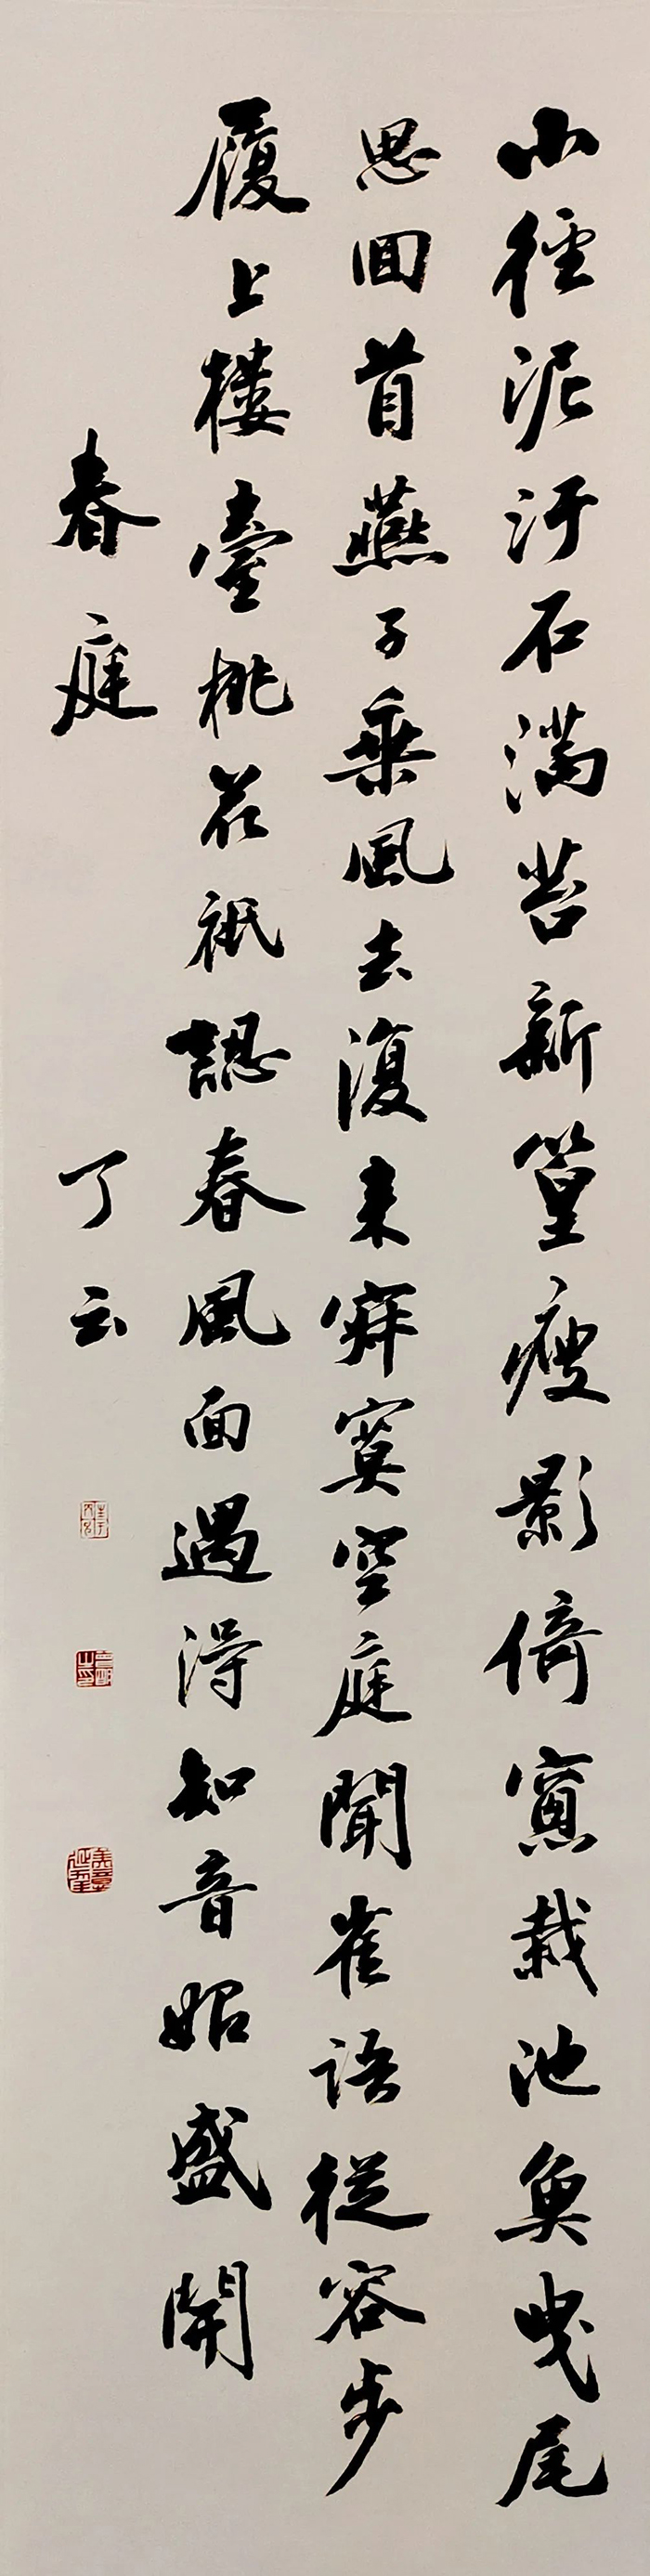 小徑泥汙石滿苔新篁瘦影倚窻栽池魚曳尾
思回首燕子乘風去復來寂寞空庭聞雀語從容步
履上樓臺桃花祇認春風面遇得知音始盛開
春庭
丁云